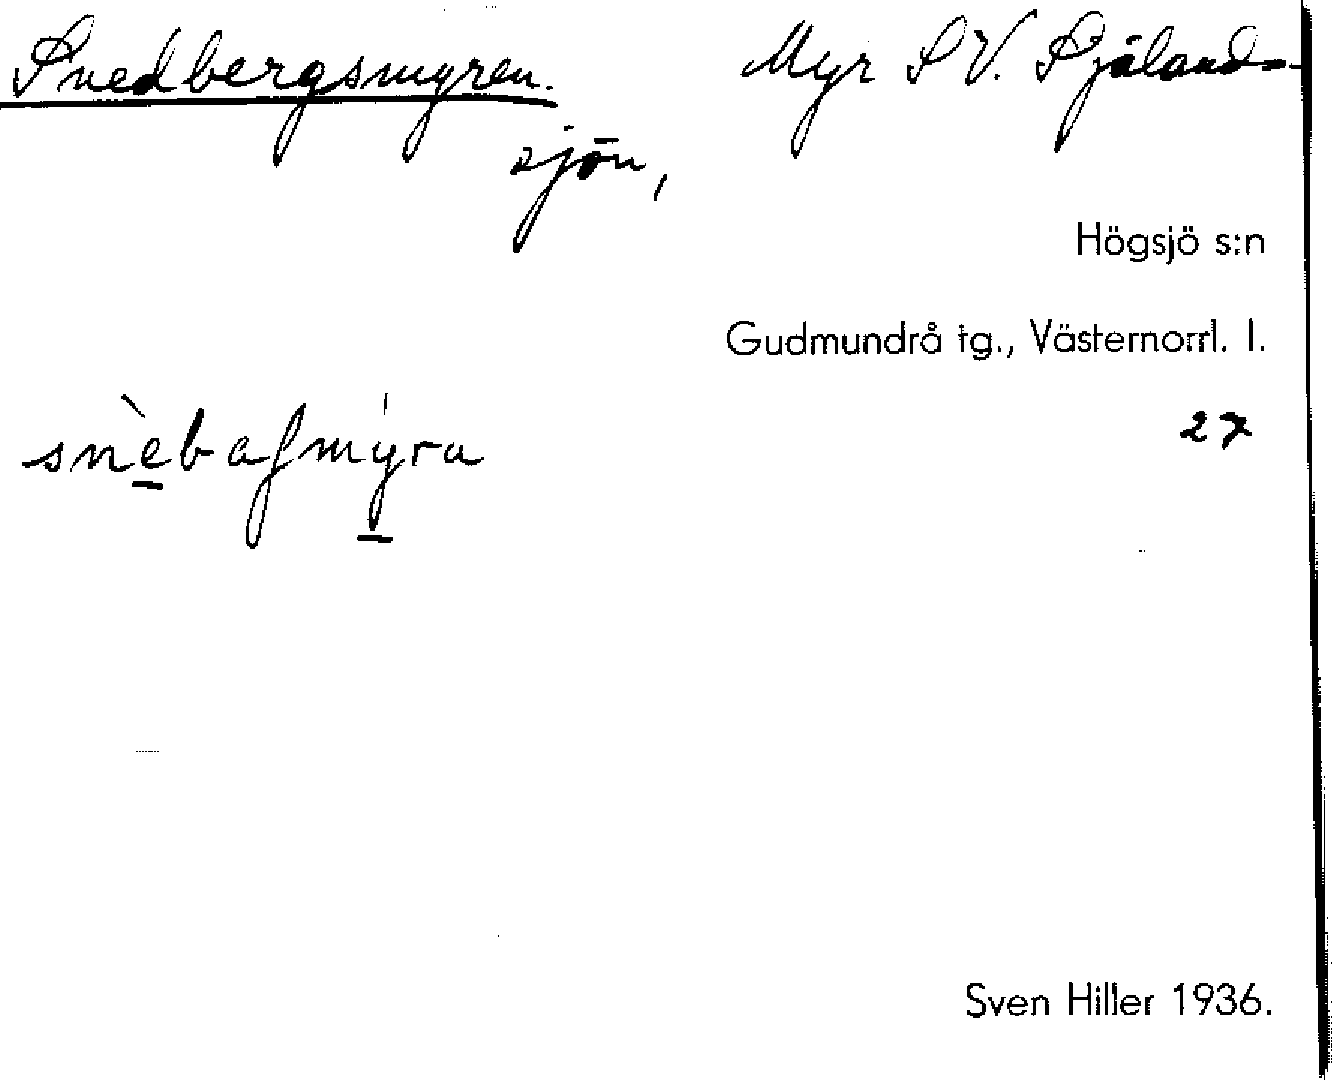 Snedbergsmyren. Myr SV. Själand-
sjön,
Högsjö s:n
Gudmundrå tg., Västernorrl. l.
27
snèbaʃmýra
Sven Hiller 1936.